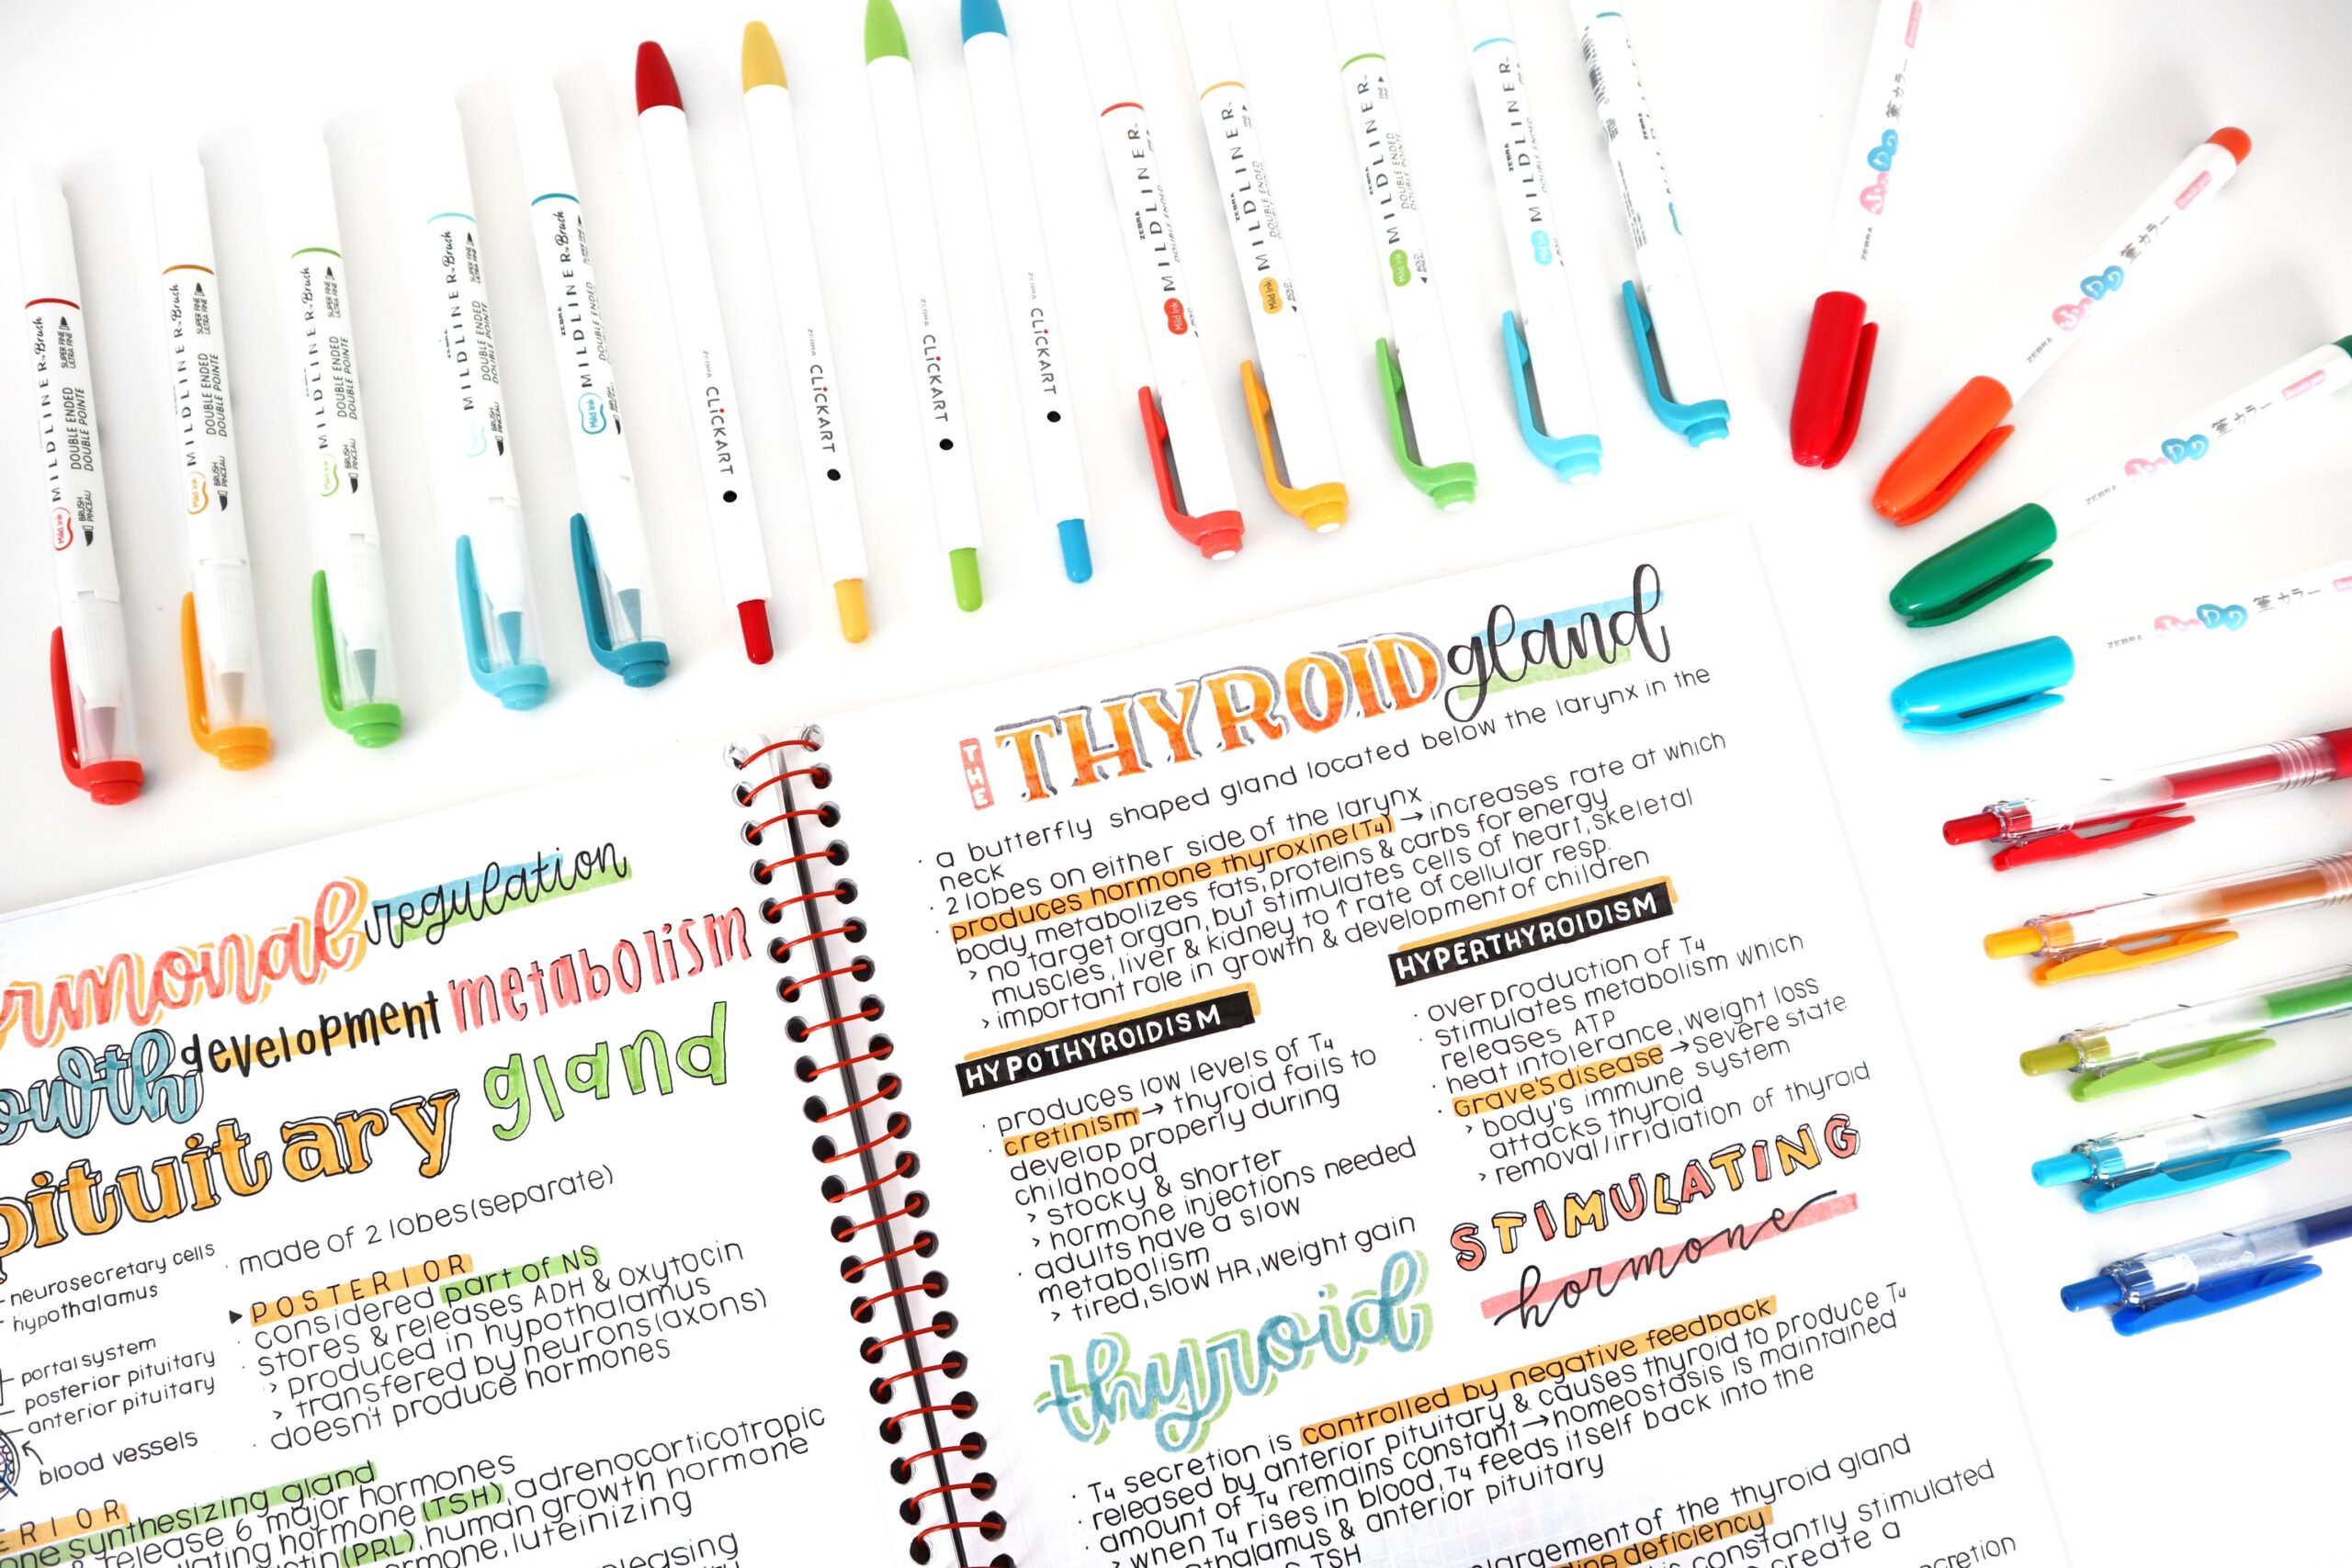 MILDLINER Brush
DOUBLE ENDED
DOUBLE POINTE
SUPER FINE
ULTRA FINE
BRUSH
PINCEAU
Mild Ink
MILDLINER Brush
DOUBLE ENDED
DOUBLE POINTE
SUPER FINE
ULTRA FINE
BRUSH
PINCEAU
Mild Ink
MILDLINER Brush
DOUBLE ENDED
DOUBLE POINTE
SUPER FINE
ULTRA FINE
BRUSH
PINCEAU
Mild Ink
MILDLINER Brush
DOUBLE ENDED
DOUBLE POINTE
SUPER FINE
ULTRA FINE
BRUSH
PINCEAU
ZEBRA
MILDLINER Brush
DOUBLE ENDED
DOUBLE POINTE
Mild Ink
ZEBRA
CLiCKART
ZEBRA
CLiCKART
ZEBRA
CLiCKART
ZEBRA
CLiCKART
ZEBRA
MILDLINER
DOUBLE ENDED
Mild Ink
BOLD
ZEBRA
MILDLINER
DOUBLE ENDED
Mild Ink
BOLD
ZEBRA
MILDLINER
DOUBLE ENDED
DOUBLE POINTE
Mild Ink
BOLD
ZEBRA
MILDLINER
DOUBLE ENDED
Mild Ink
ZEBRA
ZEBRA
筆カラー
ZEBRA
筆カラー
ZEBRA
筆カラー
ZEBRA
筆カラー
regulation
development metabolism
pituitary gland
made of 2 lobes (separate)
neurosecretary cells
hypothalamus
portal system
posterior pituitary
anterior pituitary
blood vessels
POSTERIOR
considered part of NS
stores & releases ADH & oxytocin
> produced in hypothalamus
> transfered by neurons (axons)
doesn't produce hormones
synthesizing gland
release 6 major hormones
hormone (TSH), adrenocorticotropic
(PRL), human growth hormone
luteinizing
THE THYROID gland
· a butterfly shaped gland located below the larynx in the
neck
· 2 lobes on either side of the larynx
· produces hormone thyroxine (T4) → increases rate at which
body metabolizes fats, proteins & carbs for energy
> no target organ, but stimulates cells of heart, skeletal
muscles, liver & kidney to ↑ rate of cellular resp.
> important role in growth & development of children
HYPOTHYROIDISM
· produces low levels of T4
· cretinism → thyroid fails to
develop properly during
childhood
> stocky & shorter
> hormone injections needed
· adults have a slow
metabolism
> tired, slow HR, weight gain
HYPERTHYROIDISM
· overproduction of T4
· stimulates metabolism which
releases ATP
· heat intolerance, weight loss
· Grave's disease → severe state
> body's immune system
attacks thyroid
> removal/irridiation of thyroid
thyroid STIMULATING
hormone
· T4 secretion is controlled by negative feedback
· released by anterior pituitary & causes thyroid to produce T4
· amount of T4 remains constant → homeostasis is maintained
> when T4 rises in blood, T4 feeds itself back into the
& anterior pituitary
TSH
of the thyroid gland
deficiency
constantly stimulated
create a